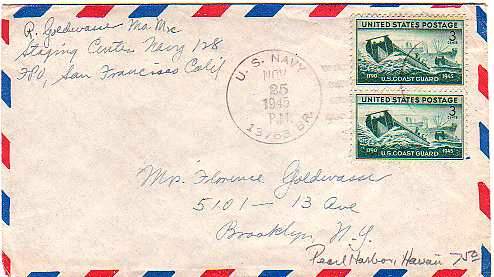 R. Goldwasser Mo. M.2/c
Staging Center Navy 128
FPO, San Francisco Calif
U. S. NAVY
NOV
25
1945
P.M.
13763 BR.
UNITED STATES POSTAGE
3
1790 U.S. COAST GUARD 1945
UNITED STATES POSTAGE
3
1790 U.S. COAST GUARD 1945
Mrs. Florence Goldwasser
5101 — 13 Ave
Brooklyn, N.Y.
Pearl Harbor, Hawaii